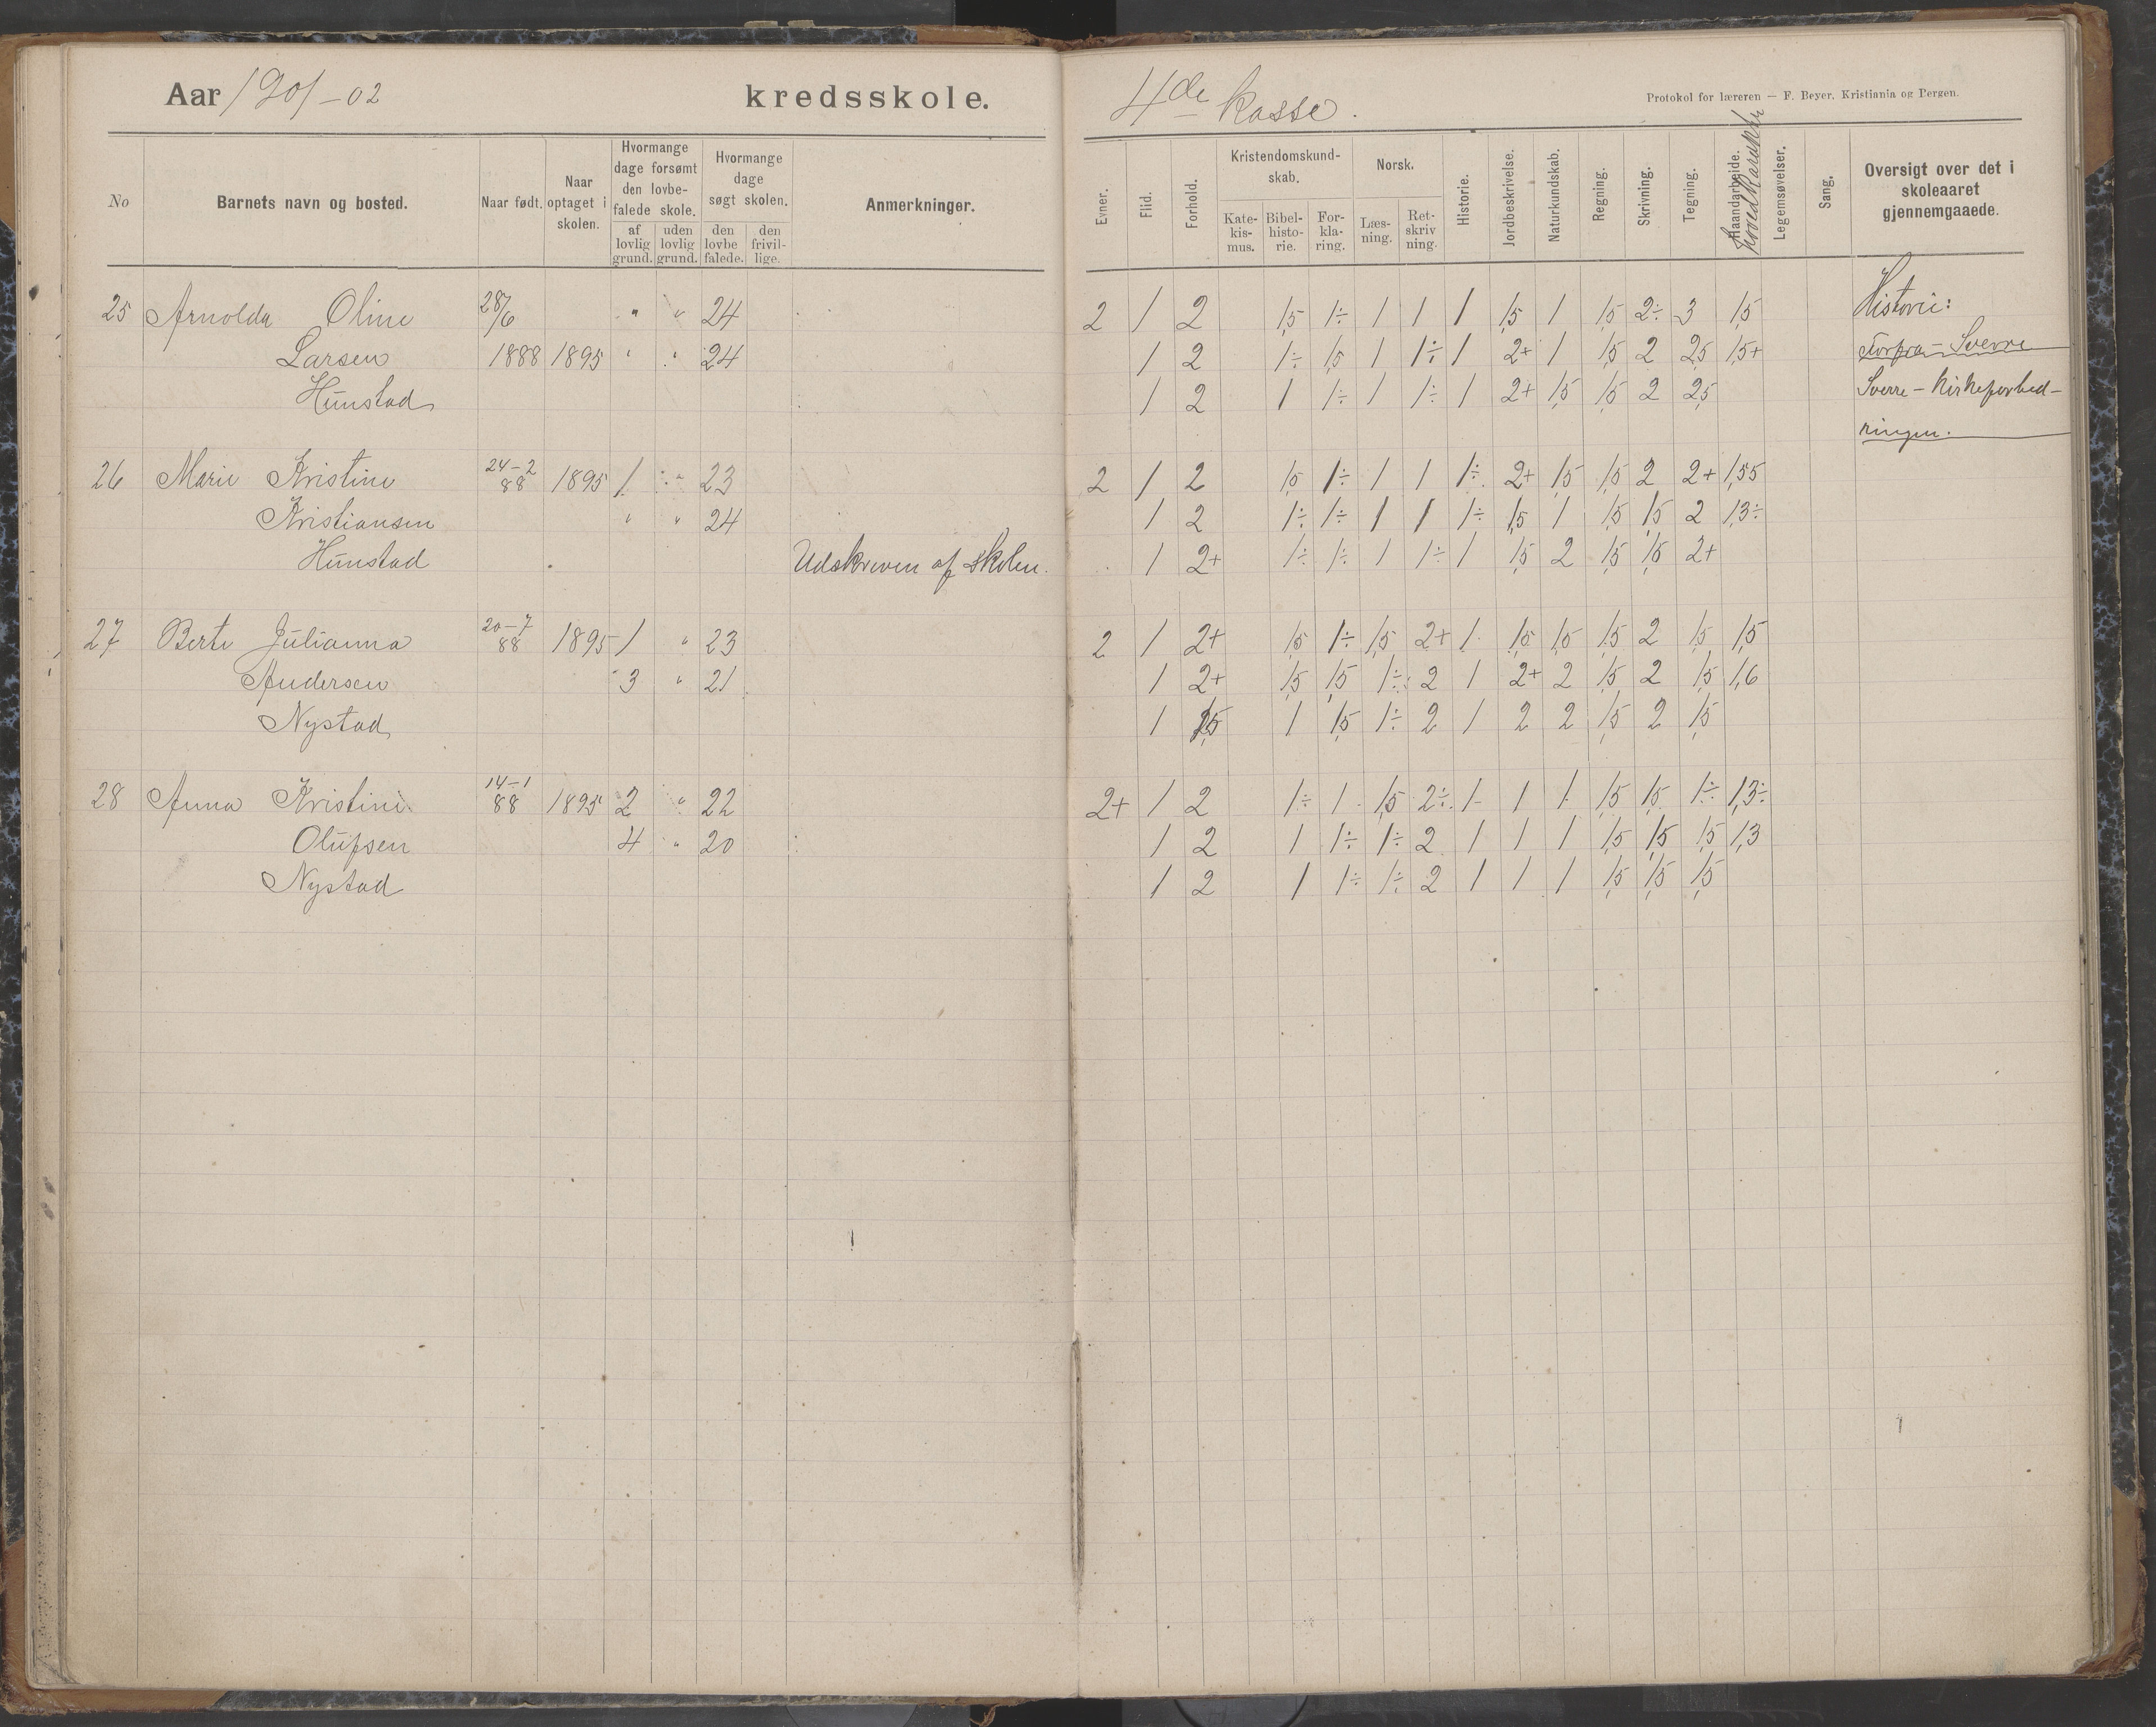 Aar 1901-02 kredsskole.
4de Kasse.
Protokol for læreren — F. Beyer, Kristiania og Bergen.
No
Barnets navn og bosted.
Naar født.
Naar optaget i skolen.
Hvormange dage forsømt den lovbefalede skole.
af lovlig grund.
uden lovlig grund.
Hvormange dage søgt skolen.
den lovbefalede.
den frivillige.
Anmerkninger.
Evner.
Flid.
Forhold.
Kristendomskundskab.
Katekismus.
Bibelhistorie.
Forklaring.
Norsk.
Læsning.
Retskrivning.
Historie.
Jordbeskrivelse.
Naturkundskab.
Regning.
Skrivning.
Tegning.
Haandarbeide.
Hovedkarakter
Legemsøvelser.
Sang.
Oversigt over det i skoleaaret gjennemgaaede.
25 Arnolda Oline 28/6 " " 24 2 1 2 1,5 1÷ 1 1 1 1,5 1 1,5 2÷ 3 1,5 Historie:
Larsen 1888 1895 " " 24 1 2 1÷ 1,5 1 1÷ 1 2+ 1 1,5 2 2,5 1,5+ Forfra - Sverre
Hunstad 1 2 1 1÷ 1 1÷ 1 2+ 1,5 1,5 2 2,5 Sverre - Kirkeforbed-
ringen.
26 Marie Kristine 24-2 88 1895 1 " 23 2 1 2 1,5 1÷ 1 1 1÷ 2+ 1,5 1,5 2 2+ 1,55
Kristiansen " " 24 1 2 1÷ 1÷ 1 1 1÷ 1,5 1 1,5 1,5 2 1,3÷
Hunstad Udskreven af skolen. 1 2+ 1÷ 1÷ 1 1÷ 1 1,5 2 1,5 1,5 2+
27 Berte Julianna 20-7 88 1895 1 " 23 2 1 2+ 1,5 1÷ 1,5 2+ 1 1,5 1,5 1,5 2 1,5 1,5
Andersen 3 " 21 1 2+ 1,5 1,5 1÷ 2 1 2+ 2 1,5 2 1,5 1,6
Nystad 1 1,5 1 1,5 1÷ 2 1 2 2 1,5 2 1,5
28 Anna Kristine 14-1 88 1895 2 " 22 2+ 1 2 1÷ 1 1,5 2÷ 1 1 1 1,5 1,5 1÷ 1,3÷
Olufsen 4 " 20 1 2 1 1÷ 1÷ 2 1 1 1 1,5 1,5 1,5 1,3
Nystad 1 2 1 1÷ 1÷ 2 1 1 1 1,5 1,5 1,5